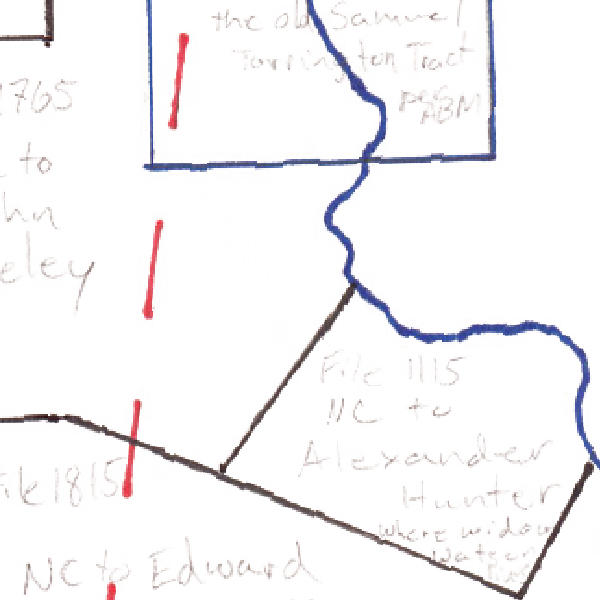 the old Samuel
Torrington Tract
ABM
1765
to
hn
eley
File 1115
NC to
Alexander
Hunter
where widow
File 1815
NC to Edward